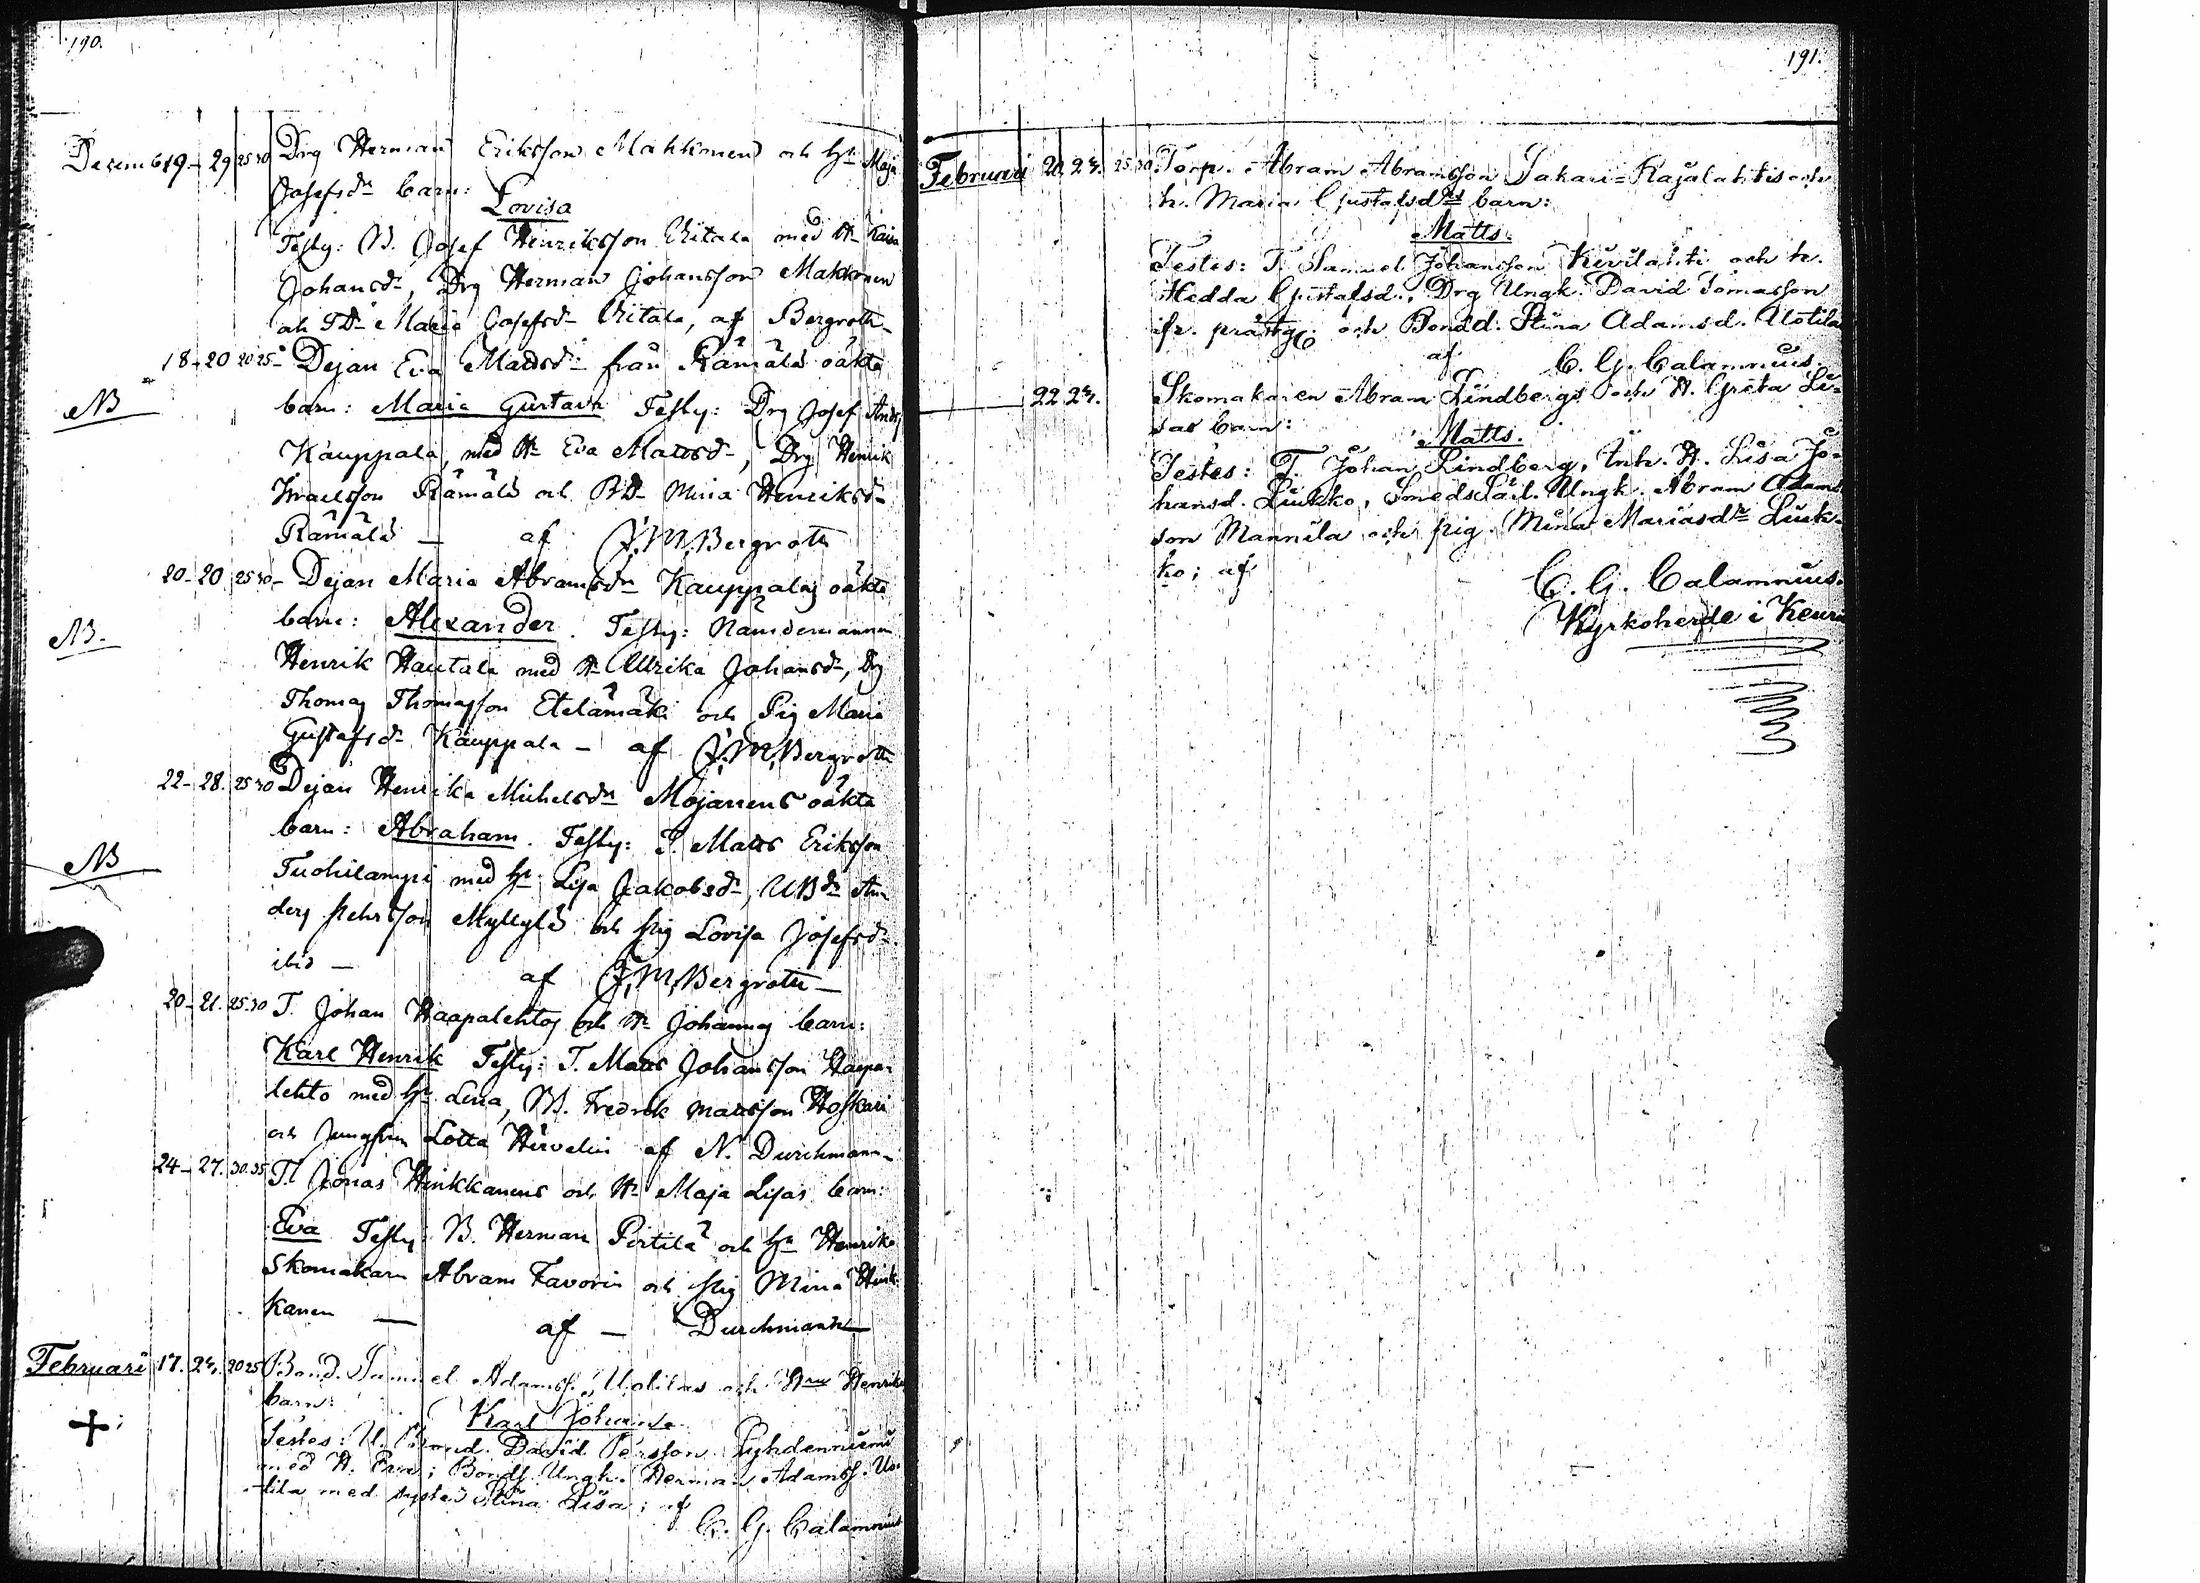 190.
Decemb 19 - 29 25 30 Drg Herman Eriksson Mahkonens och h:u Maja
Josefsdr barn:
Lovisa
Testes: B. Josef Henriksson Riitala med H:u Kaisa
Johansdr, Drg Herman Johansson Makkonen
och TDr Maria Josefsdr Riitala, af Bergroth
18 - 20 20 25 - Dejan Eva Mattsdr från Rämälä oäkta
NB barn: Maria Gustava Testes: Drg Josef Anders
Kauppala, med H:u Eva Mattsdr, Drg Henrik
Israelsson Rämälä och BDr Mina Henriksdr
Rämälä — af J. M. Bergroth
20 - 20 25 30 - Dejan Maria Abramsdr Kauppalas oäkta
NB. barn: Alexander. Testes: Nämdemannen
Henrik Hautala med H:u Ulrika Johansdr, Drg
Thomas Thomasson Etelämäki och Pig Maria
Gustafsdr Kauppala - af J. M. Bergroth
22 - 28. 25 30 Dejan Henrika Michelsdr Mojanens oäkta
NB barn: Abraham. Testes: T. Matts Eriksson
Tuohilampi med h:u Lisa Jakobsdr, UBdr An
ders Pehrsson Myllylä och pig Lovisa Josefsdr
ibid — af J. M. Bergroth —
20 - 21. 25.30 T. Johan Haapalehtos och H:u Johannas barn:
Karl Henrik Testes: T. Matts Johansson Haapa-
lehto med h:u Lena, B. Fredrik Mattsson Hoskari
och Jungfrun Lotta Hirvelin af N. Durchmann-
24 - 27. 30.35 T. Jonas Hinkkanens och H:u Maja Lisas barn:
Eva Testes: B. Herman Pirtilä och h:u Henrika
Skomakarn Abram Favorin och pig Mina Hink-
kanen — af — Durchmann —
Februari 17. 24. 20 25 Bond. Samuel Adamss. Uotilas och H:us Henrikas
barn:
Karl Johan
Testes: U. Bond. David Persson Pyhdenniemi
med H. Eva; Bonds. Ungk. Herman Adamss. Uo-
tila med syster Stina Lisa; af
C. G. Calamnius
191.
Februari 20. 24. 25 30. Torp. Abram Abramsson Sakari=Rajalahtis och
h. Maria Gustafsdrs barn:
Matts.
Testes: T. Samuel Johansson Kivilahti och h.
Hedda Gustafsd., Drg Ungk. David Tomasson
ifr. prästg. och Bondd. Stina Adamsd. Uotila
af C. G. Calamnius.
22. 24. Skomakaren Abram Lindbergs och H. Greta Li-
sas barn:
Matts.
Testes: T. Johan Lindberg, Enk. H. Lisa Jo-
hansd. Liukko, Ungk. Abram Adams
son Mannila och pig. Mina Mariasdr Liuk-
ko; af
C. G. Calamnius.
Kyrkoherde i Keuru